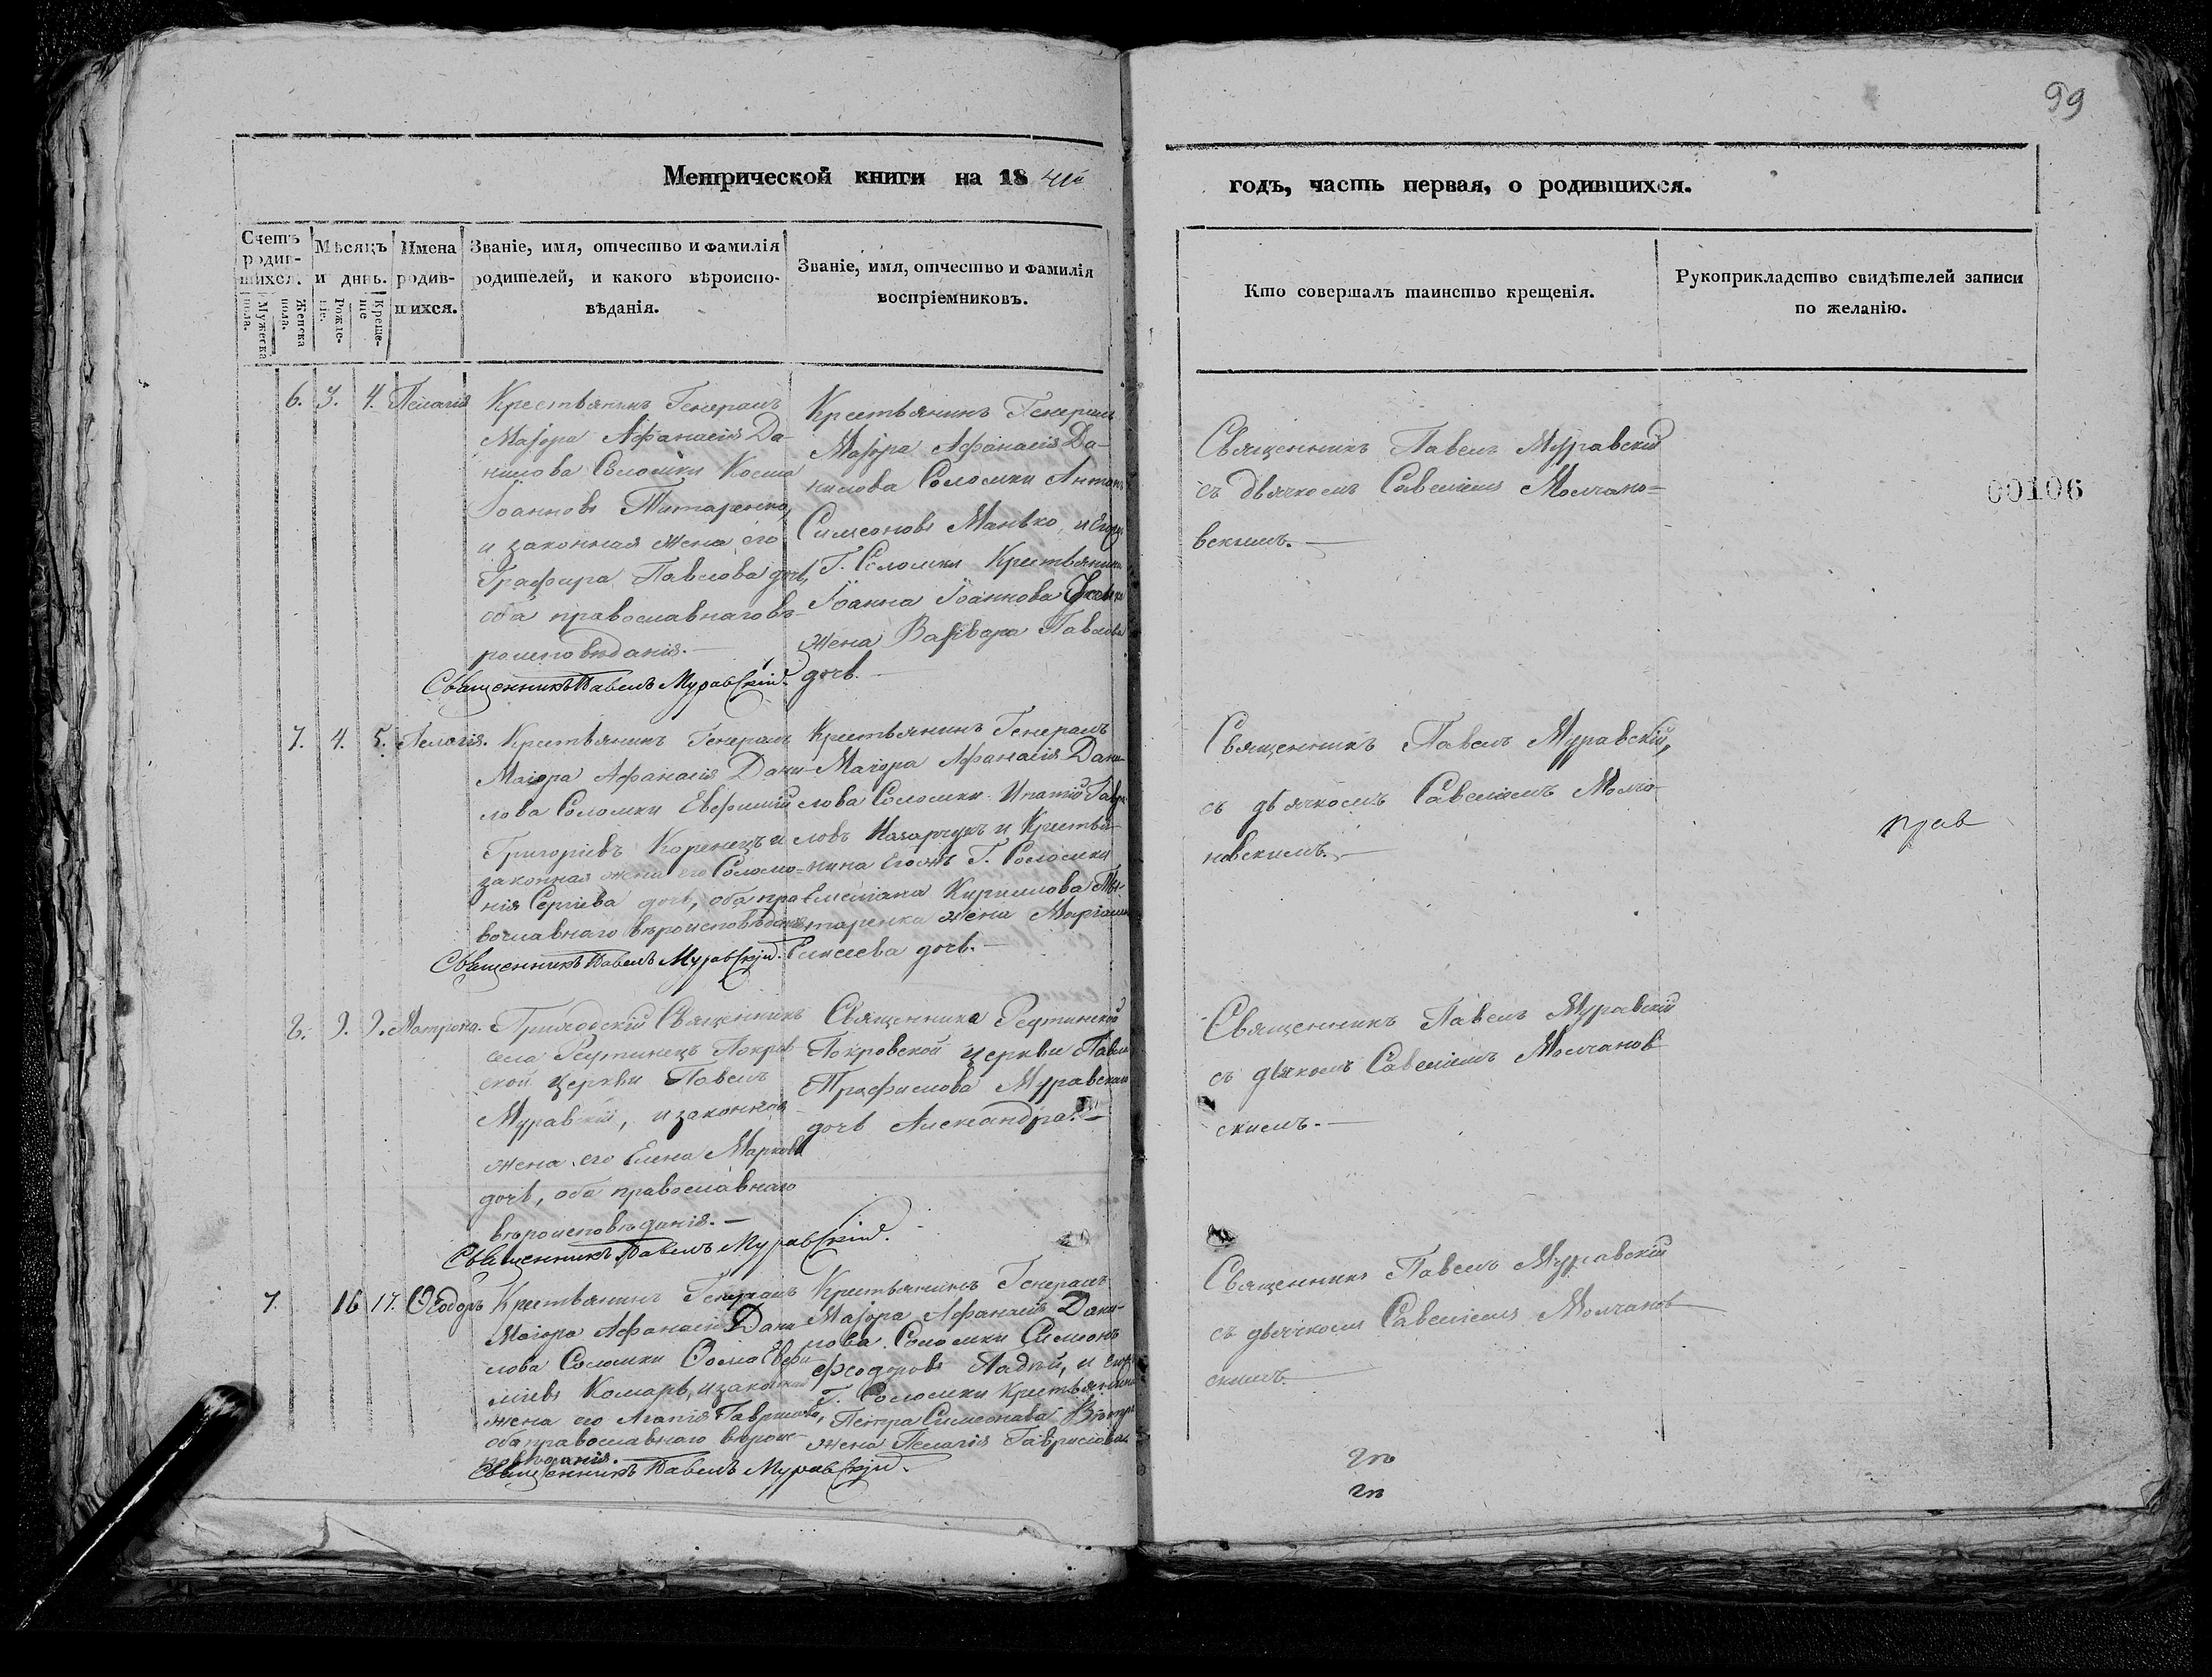 99
Метрической книги на 18 41й
годъ, часть первая, о родившихся.
Счетъ родив-шихся.
Мужеска пола.
Женска пола.
Мѣсяцъ и день.
Рожде-ніе.
Креще-ніе
Имена родив-шихся.
Званіе, имя, отчество и фамилія
родителей, и какого вѣроиспо-
вѣданія.
Званіе, имя, отчество и фамилія
воспріемниковъ.
Кто совершалъ таинство крещенія.
Рукоприкладство свидѣтелей записи
по желанію.
6. 3. 4. Пелагія
Крестьянинъ Генералъ
Маjора Афанасія Да-
нилова Соломки Косма
Іоанновъ Титаренко,
и законная жена его
Графира Павлова дочь,
оба православнаго вѣ-
роисповѣданія.—
Священникъ Павелъ Муравскій.
Крестьянинъ Генералъ
Маjора Афанасія Да-
нилова Соломки Антонъ
Симеоновъ Манько, и
Г. Соломки Крестьянина
Іоанна Іоаннова
жена Варвара Павлова
дочь.—
Священникъ Павелъ Муравскій
съ дьячкомъ Савеліемъ Молчано-
вскимъ.—
00106
7. 4. 5. Пелагія.
Крестьянинъ Генералъ
Маіора Афанасія Дани-
лова Соломки Евфимій
Григоріевъ Коренецъ и
законная жена его Соломо-
нія Сергіева дочь, оба пра-
вославнаго вѣроисповѣданія
Священникъ Павелъ Муравскій.
Крестьянинъ Генералъ
Маіора Афанасія Дани-
лова Соломки Игнатій Гаври-
ловъ Назарчукъ и Крестья-
нина Егожъ Г. Соломки
Емеліана Кириллова Ти-
таренка жена Маріамна
Елисеева дочь.—
Священникъ Павелъ Муравскій,
съ дьячкомъ Савеліемъ Молча-
новскимъ.—
прав
8. 9. 9. Матрона.
Приходскій Священникъ
села Реутинецъ Покров-
ской церкви Павелъ
Муравскій, и законная
жена его Елена Маркова
дочь, оба православнаго
вѣроисповѣданія.—
Священникъ Павелъ Муравскій.
Священника Реутинской
Покровской церкви Павла
Трофимова Муравскаго
дочь Александра.—
Священникъ Павелъ Муравскій
съ дьячкомъ Савеліемъ Молчанов-
скимъ.—
7. 16 17. Ѳеодоръ
Крестьянинъ Генералъ
Маіора Афанасія Дани
лова Соломки Ѳома Евфи
міевъ Комаръ, и законная
жена его Агапія Гаврилова,
оба православнаго вѣроис-
повѣданія.—
Священникъ Павелъ Муравскій.
Крестьянинъ Генералъ
Маjора Афанасія Дани-
лова Соломки Симеонъ
Феодоровъ ПаДѣй, и
Г. Соломки Крестьянина
Петра Симеонова
жена Пелагія Гаврилова.
Священникъ Павелъ Муравскій
съ дьячкомъ Савеліемъ Молчанов-
скимъ.—